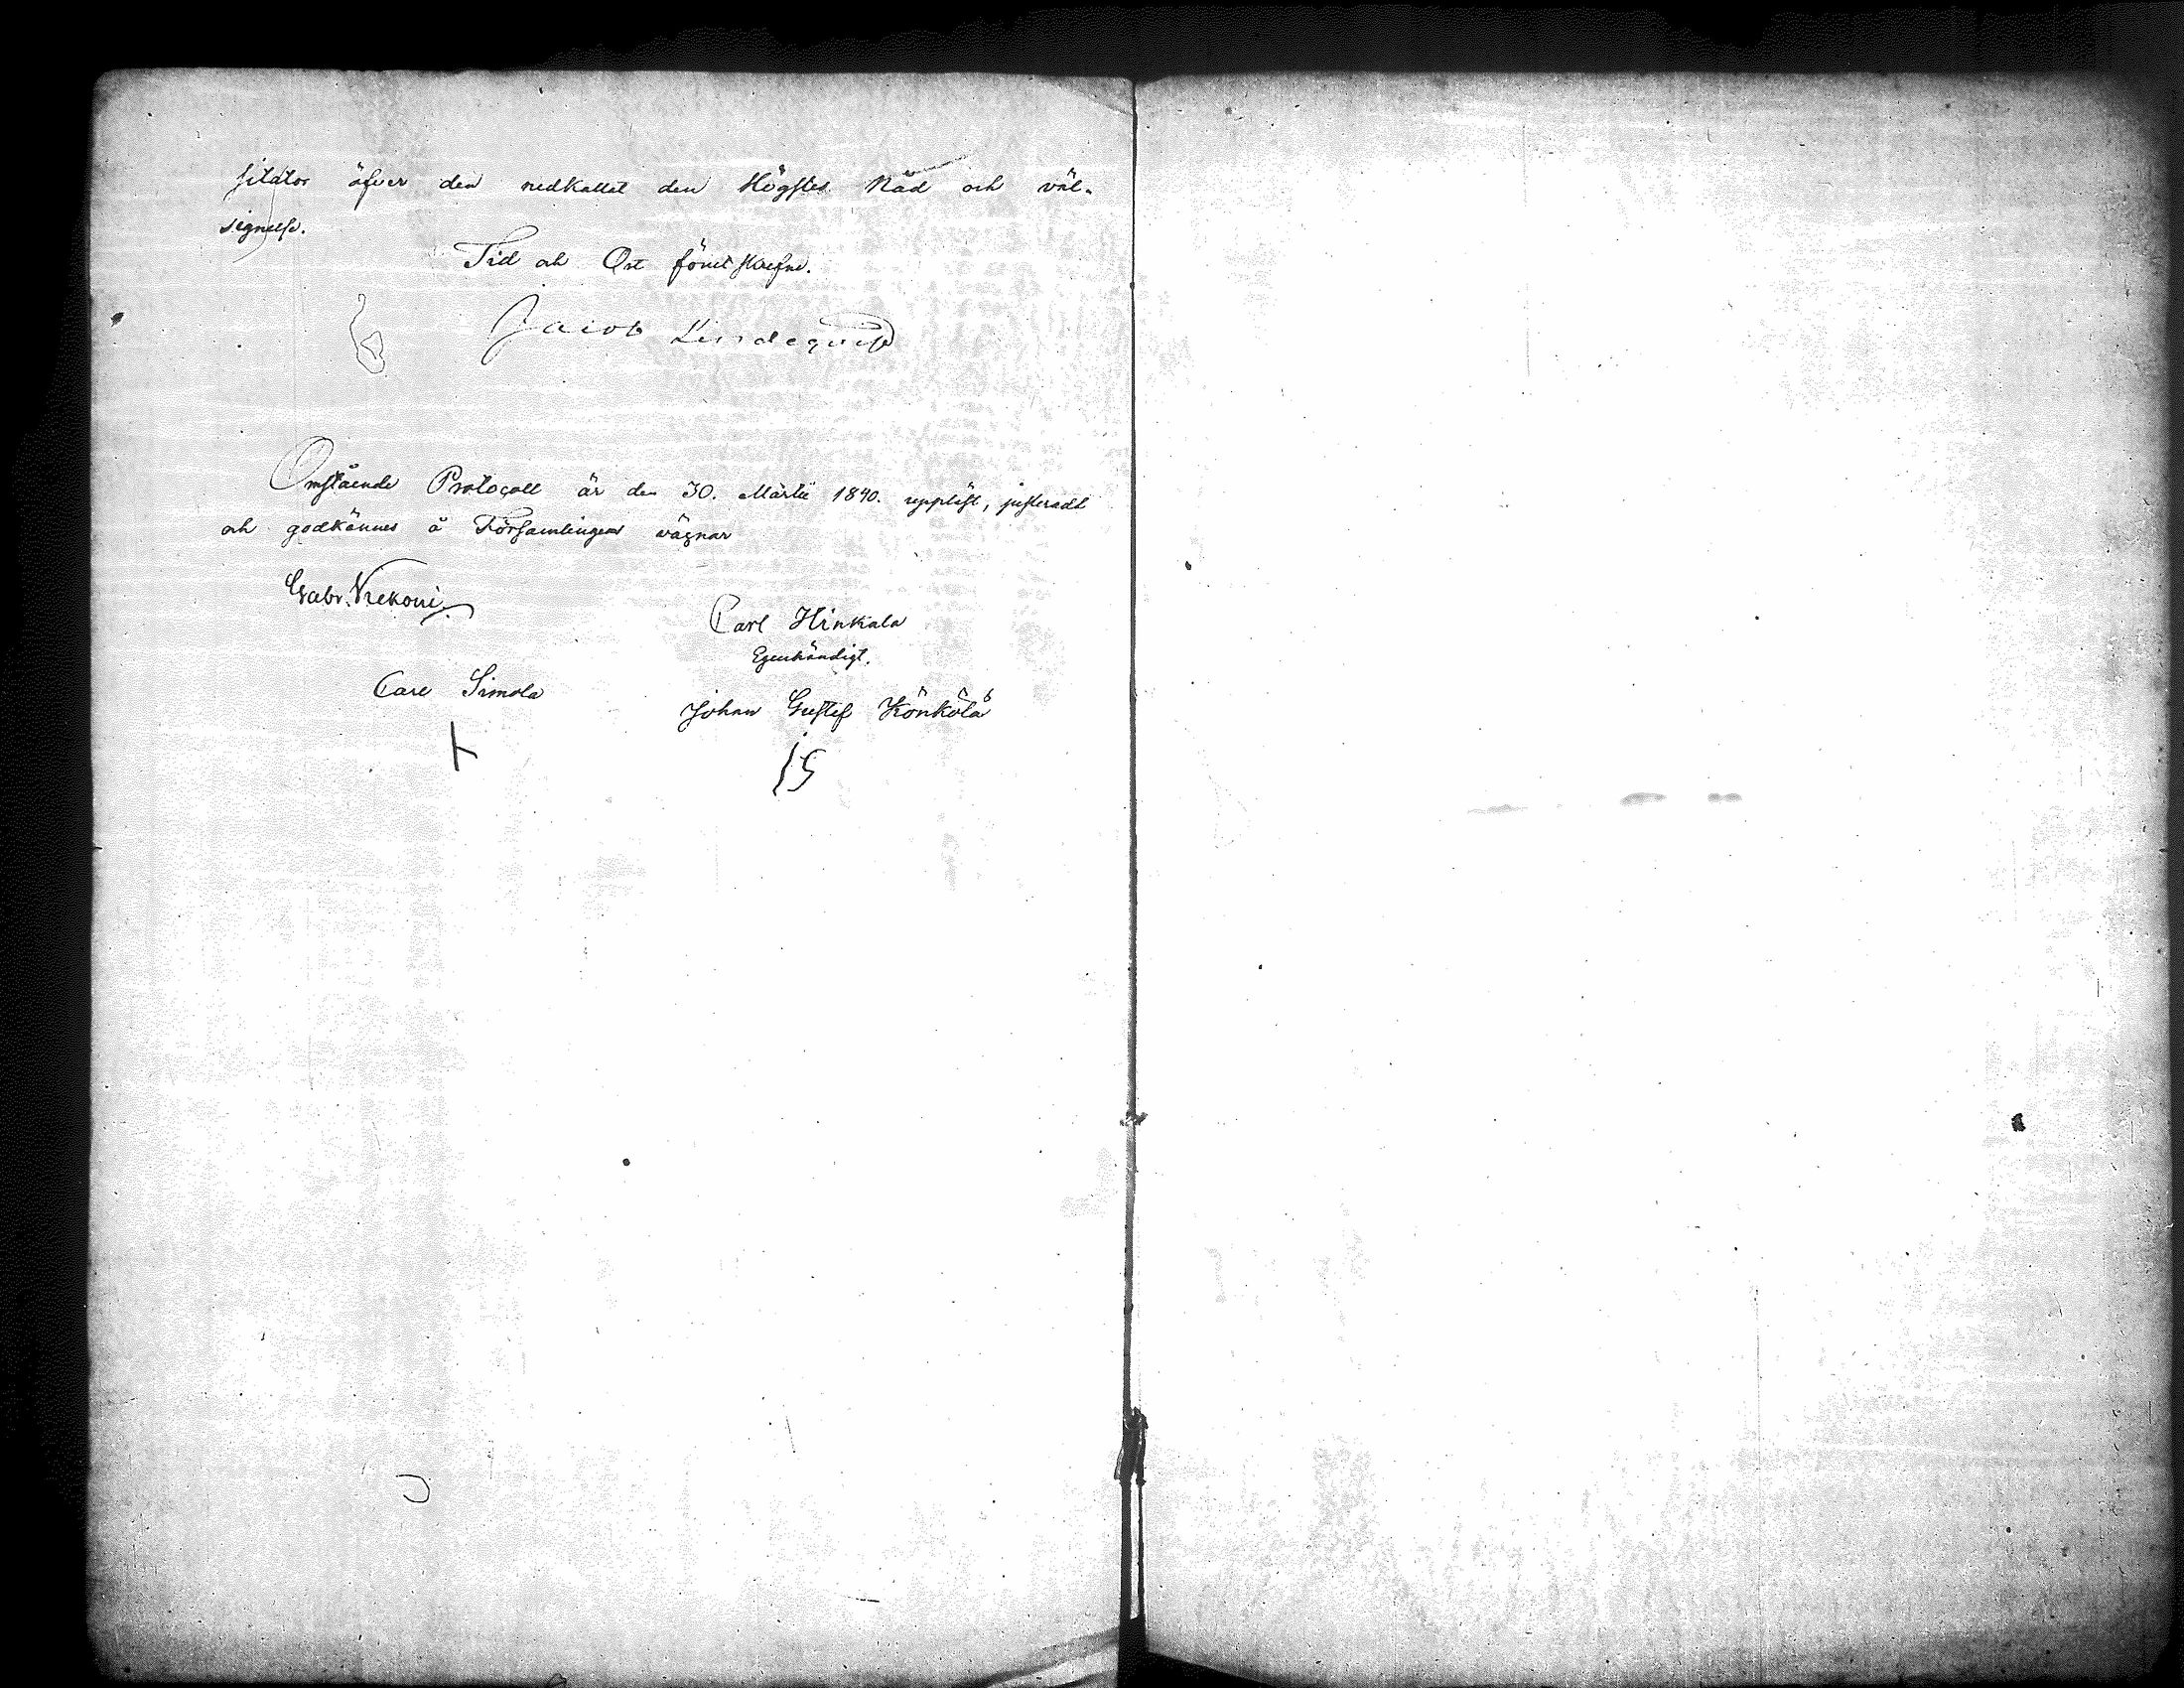 sitator öfver den nedkallat den Högstes Nåd och väl-
signelse.
Tid och Ort förut skrefne.
Jacob Lindequist
Omstående Protocoll är den 30. Martii 1840. uppläst, justeradt
och godkännes å Församlingens vägnar
Gabr.
Carl Hinkala
Egenhändigt.
Carl Simola
Johan Gustef Könkölä